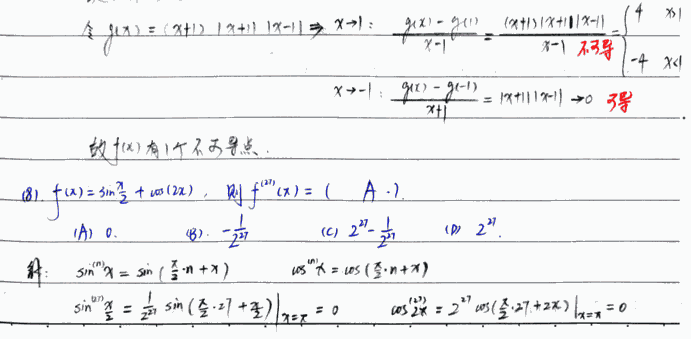 令 g(x) = (x+1) |x+1| |x-1| ⇒ x→1: \frac{g(x)-g(1)}{x-1} = \frac{(x+1)|x+1||x-1|}{x-1} = \begin{cases} 4 & x>1 \\ -4 & x<1 \end{cases} 不可导
x→-1: \frac{g(x)-g(-1)}{x+1} = |x+1||x-1| → 0 可导.
故 f(x) 有1个不可导点.
(8). f(x) = sin\frac{x}{2} + cos(2x), 则 f^{(27)}(π) = ( A . ).
(A) 0. (B). -\frac{1}{2^{27}} (C) 2^{27} - \frac{1}{2^{27}} (D) 2^{27}.
解: sin^{(n)}x = sin(\frac{π}{2}·n + x) cos^{(n)}x = cos(\frac{π}{2}·n + x)
sin^{(27)}\frac{x}{2} = \frac{1}{2^{27}} sin(\frac{π}{2}·27 + \frac{x}{2})|_{x=π} = 0 cos^{(27)}2x = 2^{27} cos(\frac{π}{2}·27 + 2x)|_{x=π} = 0